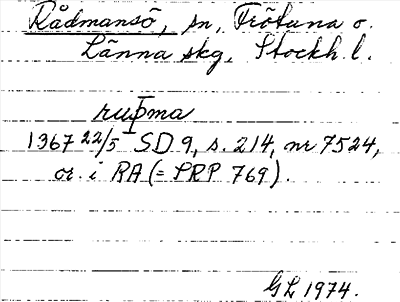 Rådmansö, sn, Frötuna o.
Länna skg, Stockh. l.
rupma
1367 22/5 SD 9, s. 214, nr 7524,
or. i RA (= SRP 769).
GL 1974.